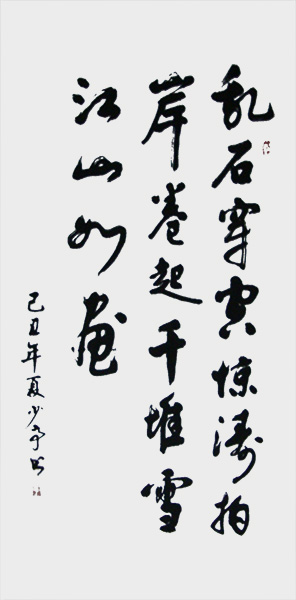 乱石穿空惊涛拍
岸卷起千堆雪
江山如画
己丑年夏少书